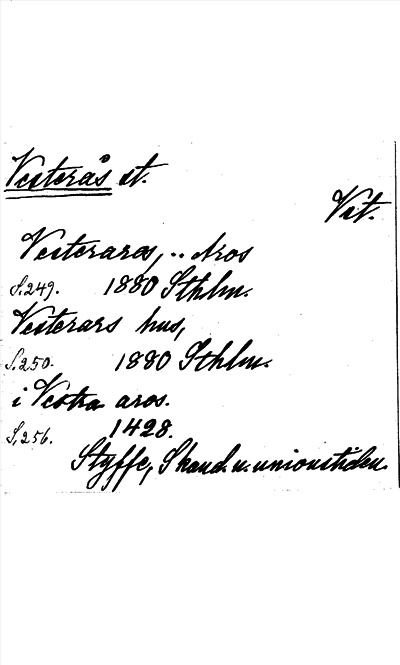 Vesterås st.
Vst.
Vesteraros, .. Aros
S. 249. 1880 Sthlm.
Vesterars hus,
S. 250. 1880 Sthlm.
i Vestra aros.
S. 256. 1428.
Styffe, Skand. u. unionstiden.